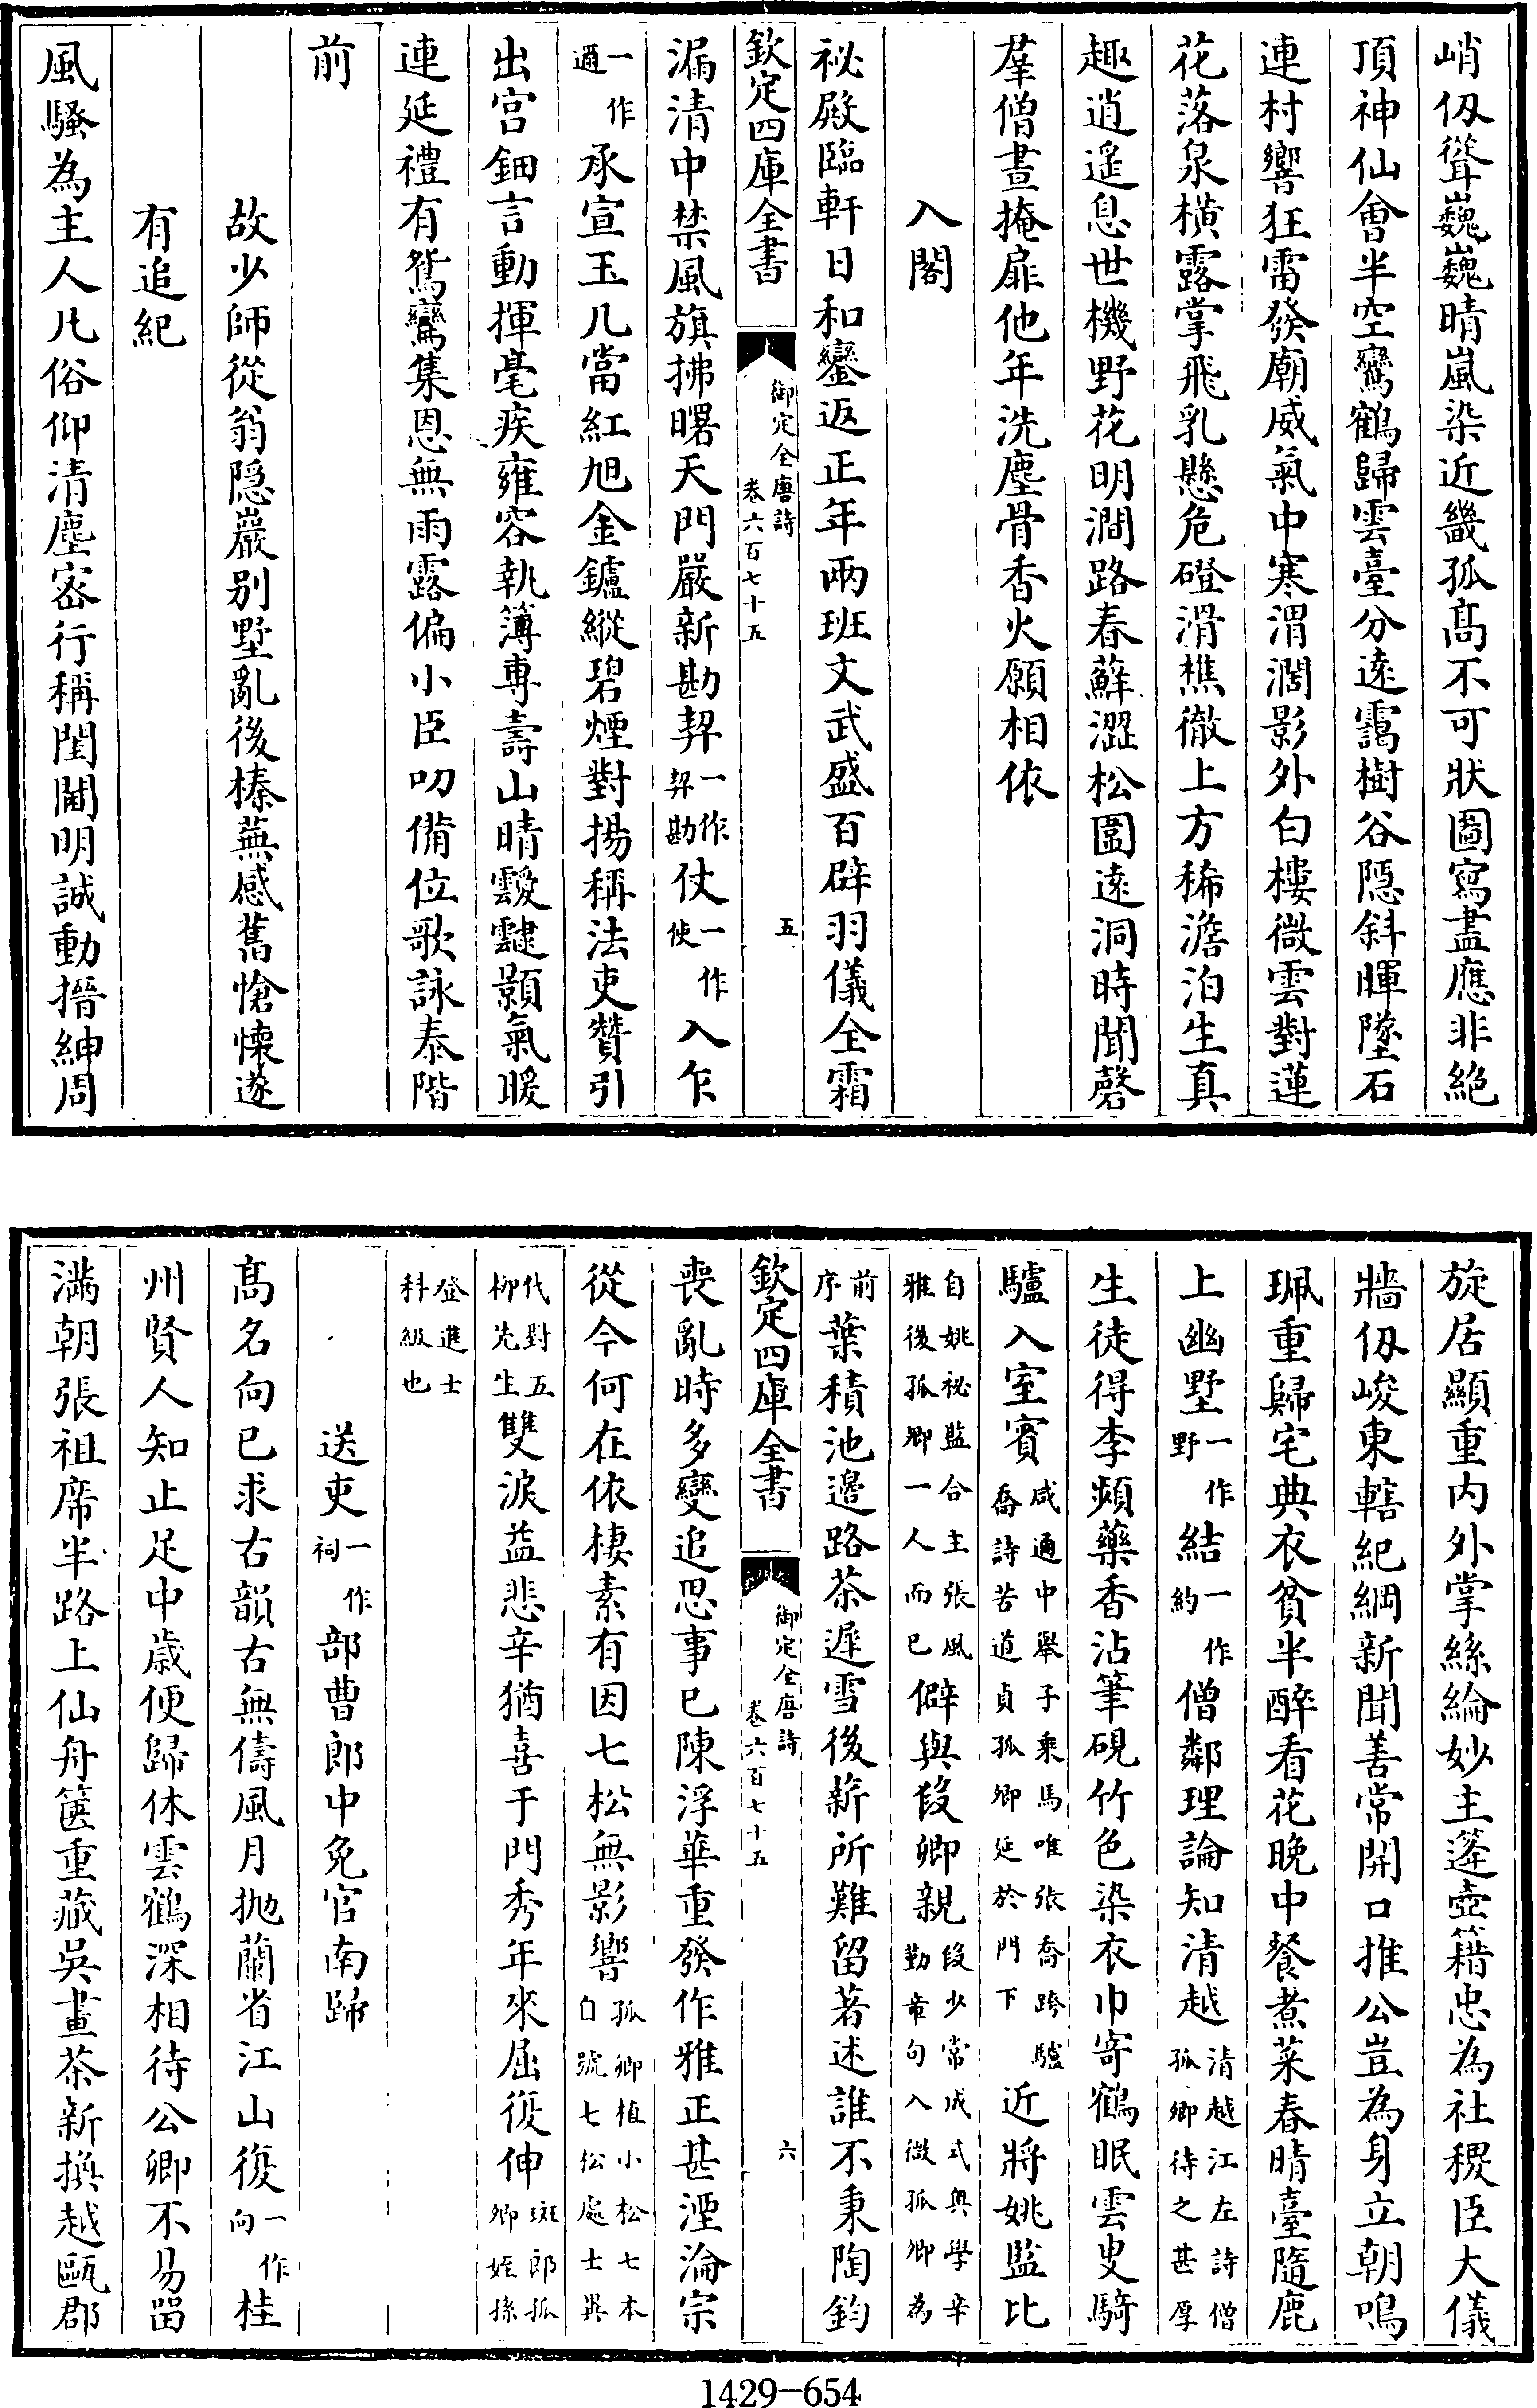 峭仭聳巍巍晴嵐染近畿孤髙不可狀圖寫盡應非絶
頂神仙會半空鸞鶴歸雲臺分逺靄樹谷隠斜暉墜石
連村響狂雷發廟威氣中寒渭濶影外白樓微雲對蓮
花落泉横露掌飛乳懸危磴滑樵徹上方稀澹泊生真
趣逍遥息世機野花明澗路春蘚澀松圍逺洞時聞磬
羣僧晝掩扉他年洗塵骨香火願相依
入閣
祕殿臨軒日和鑾返正年兩班文武盛百辟羽儀全霜
欽定四庫全書
御定全唐詩
卷六百七十五
五
漏清中禁風旗拂曙天門嚴新勘契一作契勘仗一作使入乍
一作遹承宣玉几當紅旭金鑪縱碧煙對揚稱法吏贊引
出宫鈿言動揮毫疾雍容執簿専壽山晴靉靆顥氣暖
連延禮有鴛鸞集恩無雨露偏小臣叨備位歌詠泰階
前
故少師從翁隠巖别墅亂後榛蕪感舊愴懐遂
有追紀
風騷為主人凡俗仰清塵宻行稱閨閫明誠動搢紳周
旋居顯重内外掌絲綸妙主蓬壺籍忠為社稷臣大儀
牆仭峻東轄紀綱新聞善常開口推公豈為身立朝鳴
珮重歸宅典衣貧半醉看花晩中餐煮菜春晴臺隨鹿
上幽墅一作野結一作約僧鄰理論知清越清越江左詩僧孤卿待之甚厚
生徒得李頻藥香沾筆硯竹色染衣巾寄鶴眠雲叟騎
驢入室賓咸通中舉子乘馬唯張喬跨驢喬詩苦道貞孤卿延於門下近將姚監比
自姚祕監合主張風雅後孤卿一人而已僻與段卿親段少常成式奥學辛勤章句入微孤卿為
前序葉積池邊路茶遲雪後薪所難留著述誰不秉陶鈞
欽定四庫全書
御定全唐詩
卷六百七十五
六
喪亂時多變追思事已陳浮華重發作雅正甚湮淪宗
從今何在依棲素有因七松無影響孤卿植小松七本自號七松處士異
代對五柳先生雙淚益悲辛猶喜于門秀年來屈復伸斑郎孤卿姪孫
登進士科級也
送吏一作祠部曹郎中免官南歸
髙名向已求古韻古無儔風月抛蘭省江山復一作向桂
州賢人知止足中歳便歸休雲鶴深相待公卿不易留
滿朝張祖席半路上仙舟篋重藏吳畫茶新換越甌郡
1429-654